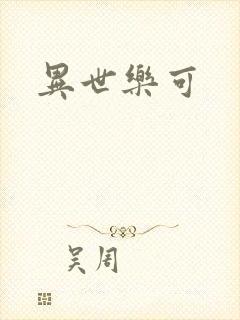 異世樂可
吴周